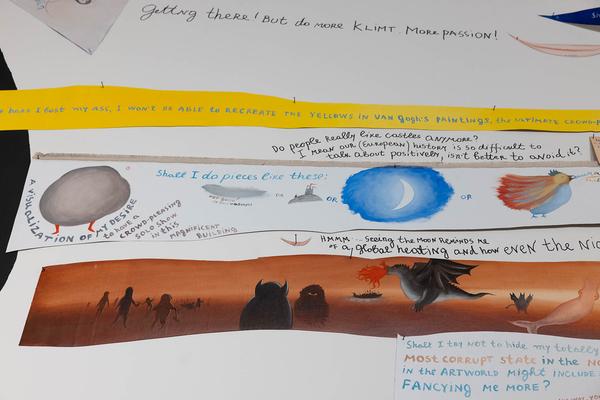 Getting there! But do more KLIMT. More passion!
I bust my ass, I won't be able to recreate the yellows in Van Gogh's paintings, the ultimate crowd-p
Do people really like castles anymore?
I mean our (European) history is so difficult to
talk about positively, isn't better to avoid it?
Shall I do pieces like these:
OR
OR
OR
A visualization of my desire
to have a
crowd-pleasing
solo show
in this
magnificent
building
HMMM... Seeing the moon reminds me
of a global heating and how even the nic
Shall I try not to hide my totally
most corrupt state in the no
in the artworld might include
fancying me more?